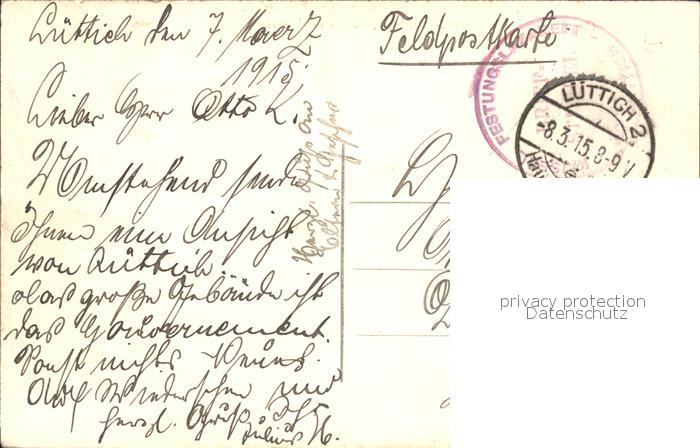 Lüttich den 7. Maerz
1915
Lieber Herr Otto K.
Umstehend sende
Ihnen eine Ansicht
von Lüttich.
das große Gebäude ist
das Gouvernement.
Sonst nichts Neues.
Auf Wiedersehen und
herzl. Gruß Ihr
Julius H.
Herzl. Gruß an
Feldpostkarte
FESTUNGSLAZARETT
LÜTTICH 2
-8.3.15.8-9V
privacy protection
Datenschutz